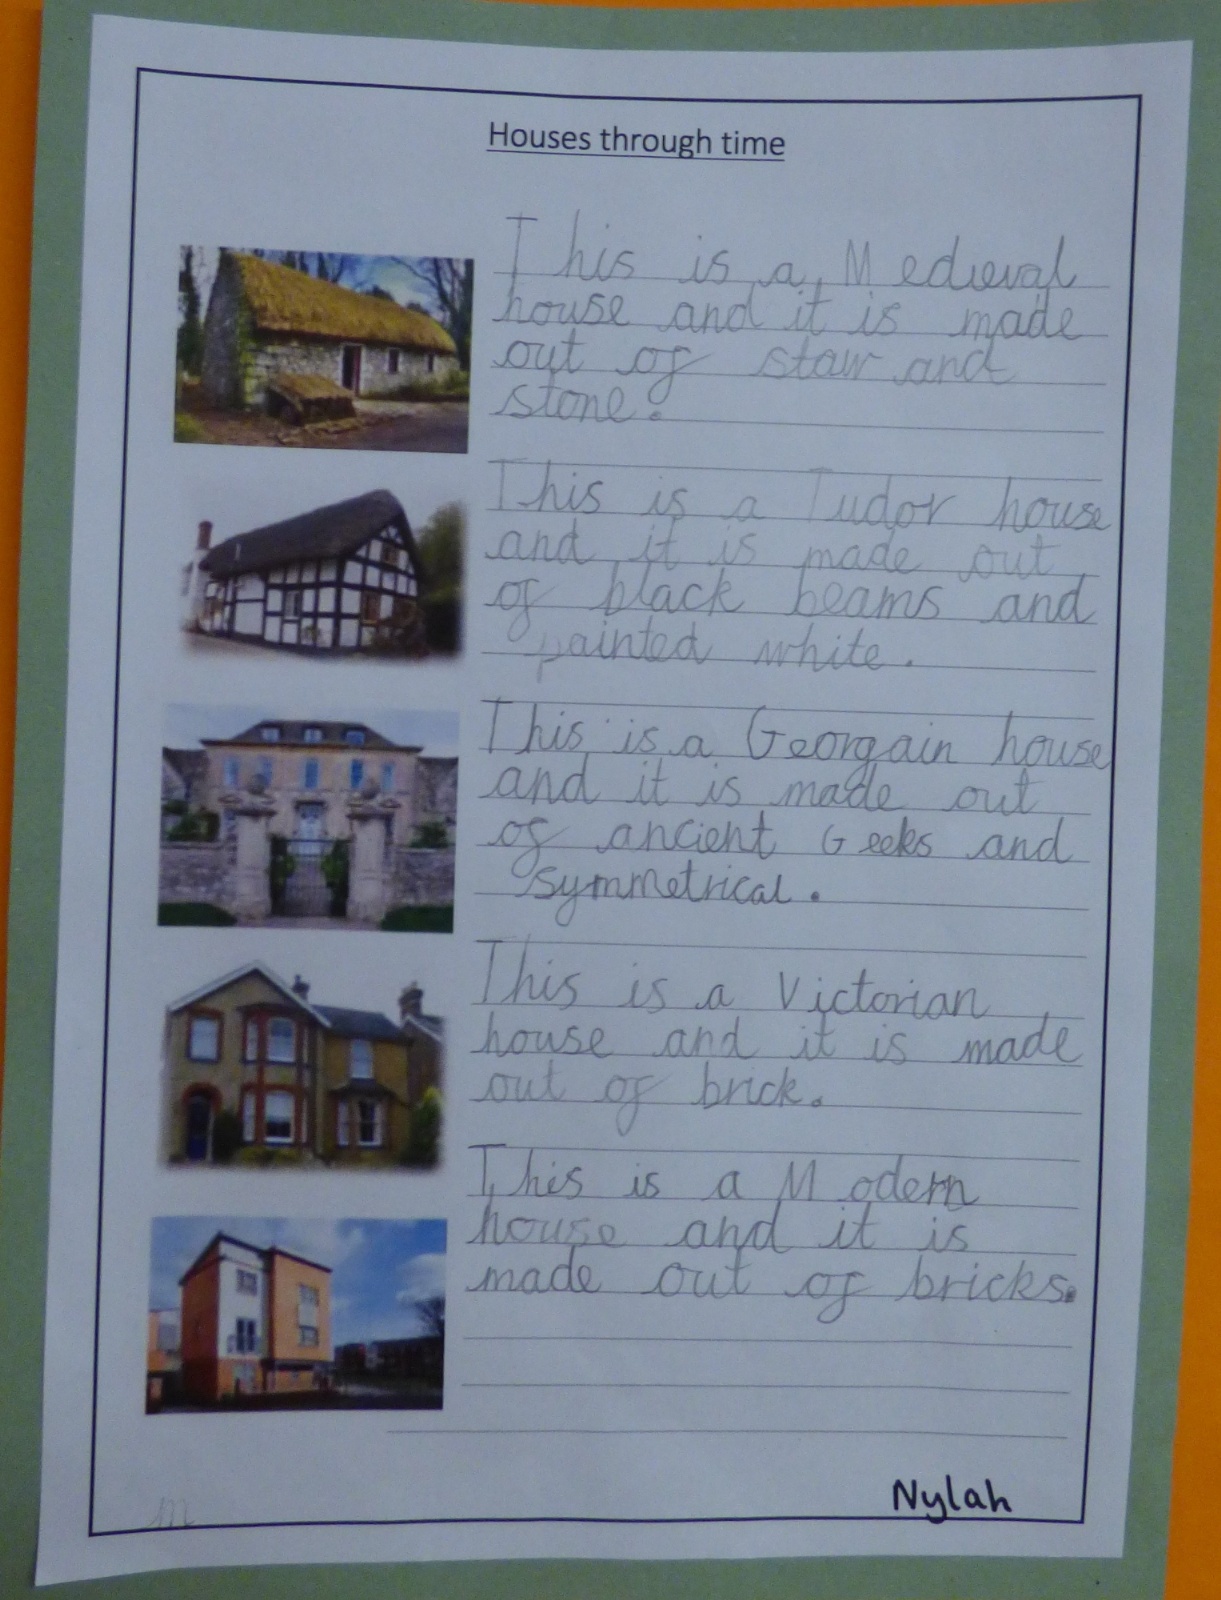 Houses through time
This is a Medieval
house and it is made
out of staw and
stone.
This is a Tudor house
and it is made out
of black beams and
painted white.
This is a Georgain house
and it is made out
of ancient Geeks and
symmetrical.
This is a Victorian
house and it is made
out of brick.
This is a Modern
house and it is
made out of bricks.
Nylah